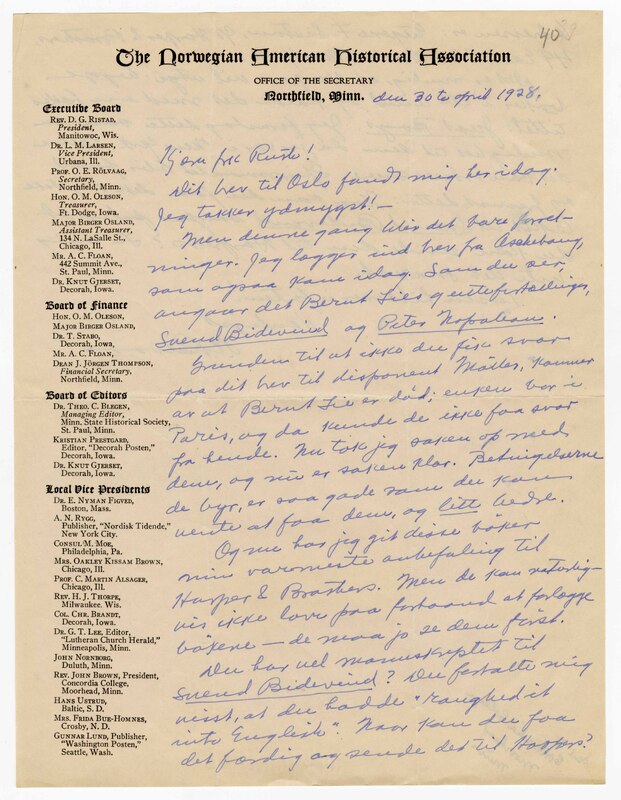 40
The Norwegian American Historical Association
OFFICE OF THE SECRETARY
Northfield, Minn. den 30te april 1928.
Executive Board
REV. D. G. RISTAD,
President,
Manitowoc, Wis.
DR. L. M. LARSEN,
Vice President,
Urbana, Ill.
PROF. O. E. RÖLVAAG,
Secretary,
Northfield, Minn.
HON. O. M. OLESON,
Treasurer,
Ft. Dodge, Iowa.
MAJOR BIRGER OSLAND,
Assistant Treasurer,
134 N. LaSalle St.,
Chicago, Ill.
MR. A. C. FLOAN,
442 Summit Ave.,
St. Paul, Minn.
DR. KNUT GJERSET,
Decorah, Iowa.
Board of Finance
HON. O. M. OLESON,
MAJOR BIRGER OSLAND,
DR. T. STABO,
Decorah, Iowa.
MR. A. C. FLOAN,
DEAN J. JÖRGEN THOMPSON,
Financial Secretary,
Northfield, Minn.
Board of Editors
DR. THEO. C. BLEGEN,
Managing Editor,
Minn. State Historical Society,
St. Paul, Minn.
KRISTIAN PRESTGARD,
Editor, "Decorah Posten,"
Decorah, Iowa.
DR. KNUT GJERSET,
Decorah, Iowa.
Local Vice Presidents
DR. E. NYMAN FIGVED,
Boston, Mass.
A. N. RYGG,
Publisher, "Nordisk Tidende,"
New York City.
CONSUL M. MOE,
Philadelphia, Pa.
MRS. OAKLEY KISSAM BROWN,
Chicago, Ill.
PROF. C. MARTIN ALSAGER,
Chicago, Ill.
REV. H. J. THORPE,
Milwaukee. Wis.
COL. CHR. BRANDT,
Decorah, Iowa.
DR. G. T. LEE, Editor,
"Lutheran Church Herald,"
Minneapolis, Minn.
JOHN NORNBORG,
Duluth, Minn.
REV. JOHN BROWN, President,
Concordia College,
Moorhead, Minn.
HANS USTRUD,
Baltic, S. D.
MRS. FRIDA BUE-HOMNES,
Crosby, N. D.
GUNNAR LUND, Publisher,
"Washington Posten,"
Seattle, Wash.
Kjære frk Rusts!
Dit brev til Oslo fandt mig her idag.
Jeg takker ydmygst! —
Men denne gang blir det bare forret-
ninger. Jeg lægger ind brev fra Aschehoug,
som ogsaa kom idag. Som du ser,
angaar det Bernt Lies guttefortællinger,
Svend Bidevind og Peter Napoleon.
Grunden til at ikke du fik svar
paa dit brev til disponent Mădes, kommer
av at Bernt Lie er död; enken var i
Paris, og da kunde de ikke faa svar
fra hende. Nu tok jeg saken op med
dem, og nu er saken klar. Betingelserne
de byr, er saa gode som du kan
vente at faa dem, og litt bedre.
Og nu har jeg git disse böker
min varmeste anbefaling til
Harper & Brothers. Men de kan naturlig-
vis ikke love paa forhaand at forlægge
bökene — de maa jo se dem först.
Du har vel manuskriptet til
Svend Bidevind? Du fortalte mig
visst, at du hadde "roughed it
into English". Naar kan du faa
det færdig og sende det til Harpers?